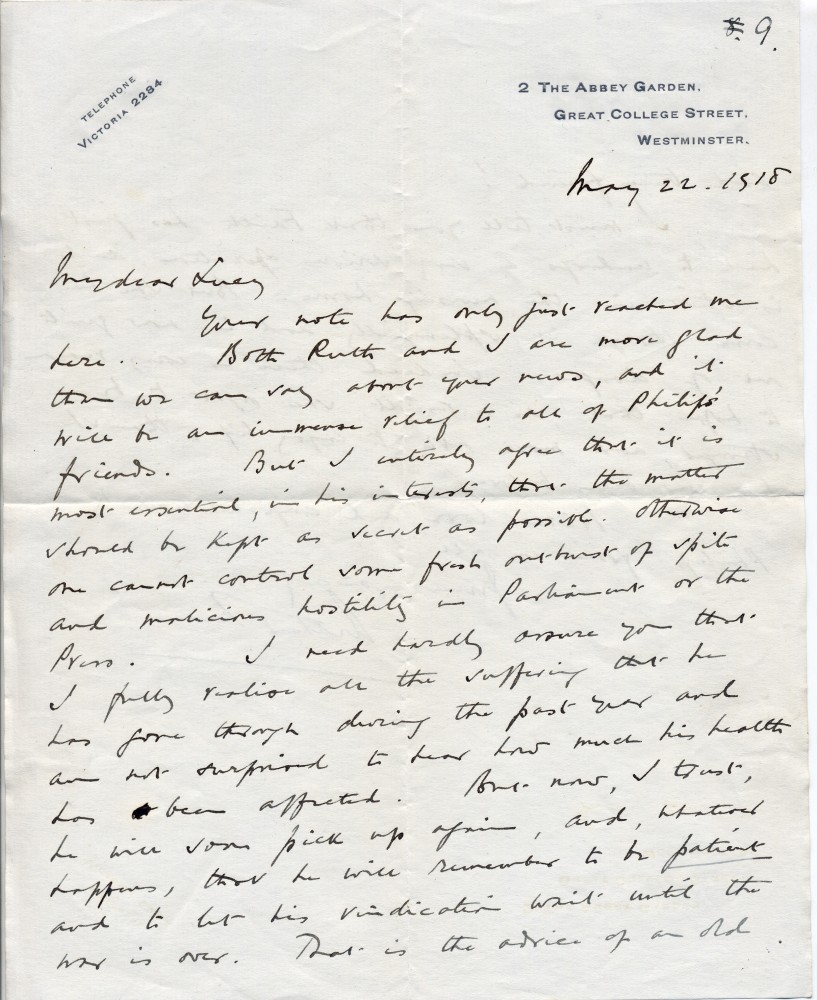 8. 9.
TELEPHONE
VICTORIA 2284
2 THE ABBEY GARDEN,
GREAT COLLEGE STREET,
WESTMINSTER.
May 22. 1918
My dear Lucy
Your note has only just reached me
here. Both Ruth and I are more glad
than we can say about your news, and it
will be an immense relief to all of Philip's
friends. But I entirely agree that it is
most essential, in his interests, that the matter
should be kept as secret as possible. Otherwise
one cannot control some fresh outburst of spite
and malicious hostility in Parliament or the
Press. I need hardly assure you that
I fully realise all the suffering that he
has gone through during the past year and
am not surprised to hear how much his health
has been affected. But now, I trust,
he will soon pick up again, and, whatever
happens, that he will remember to be patient
and to let his vindication wait until the
war is over. That is the advice of an old